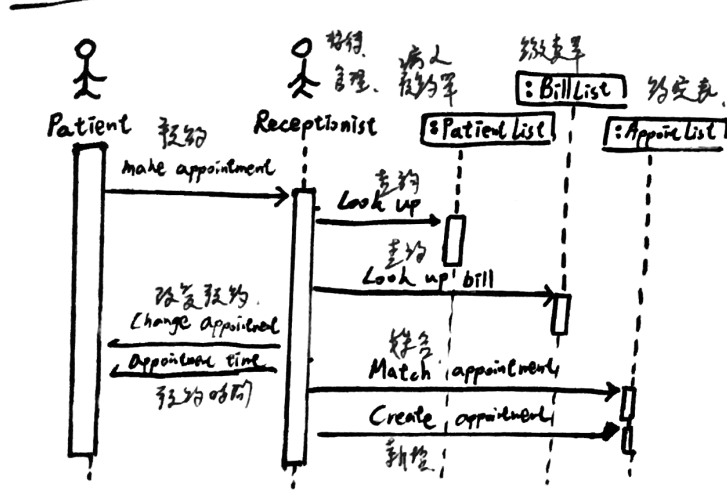 接待
管理
病人
预约单
缴费单
:BillList
约定表
Patient
Receptionist
:PatientList
:AppoinList
预约
make appointment
查约
Look up
查约
Look up bill
改变预约
Change appointment
Appointment time
预约时间
综合
Match appointment
Create appointment
新增